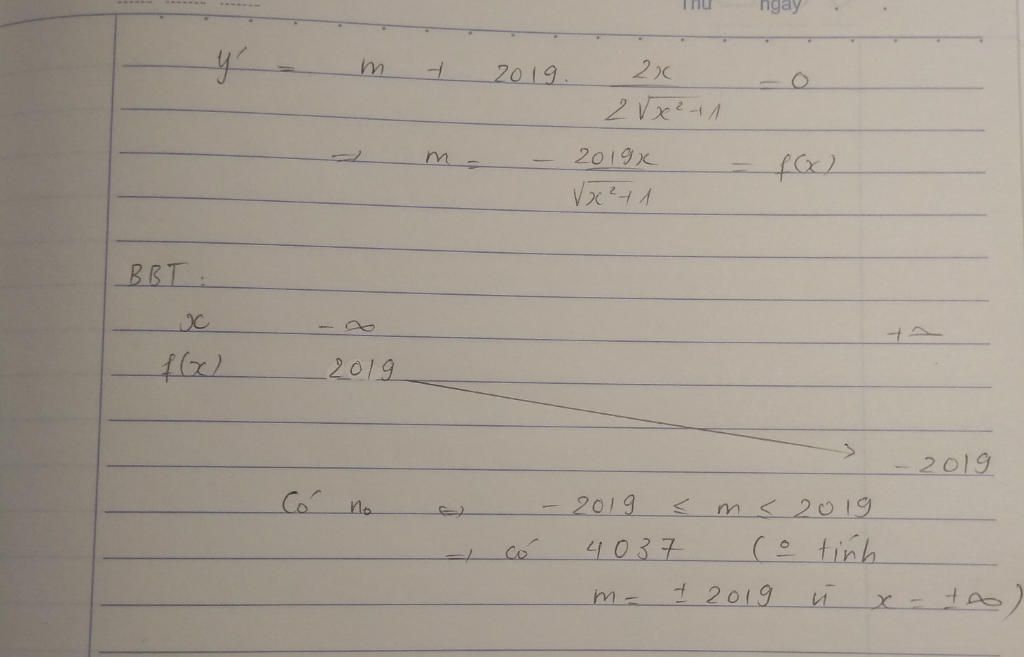 Thứ ngày
y' = m + 2019. 2x / 2√x²+1 = 0
=> m = - 2019x / √x²+1 = f(x)
BBT :
x -∞ +∞
f(x) 2019
-2019
Có no <=> -2019 ≤ m ≤ 2019
=> có 4037 (o tính
m = ± 2019 vì x = ±∞)